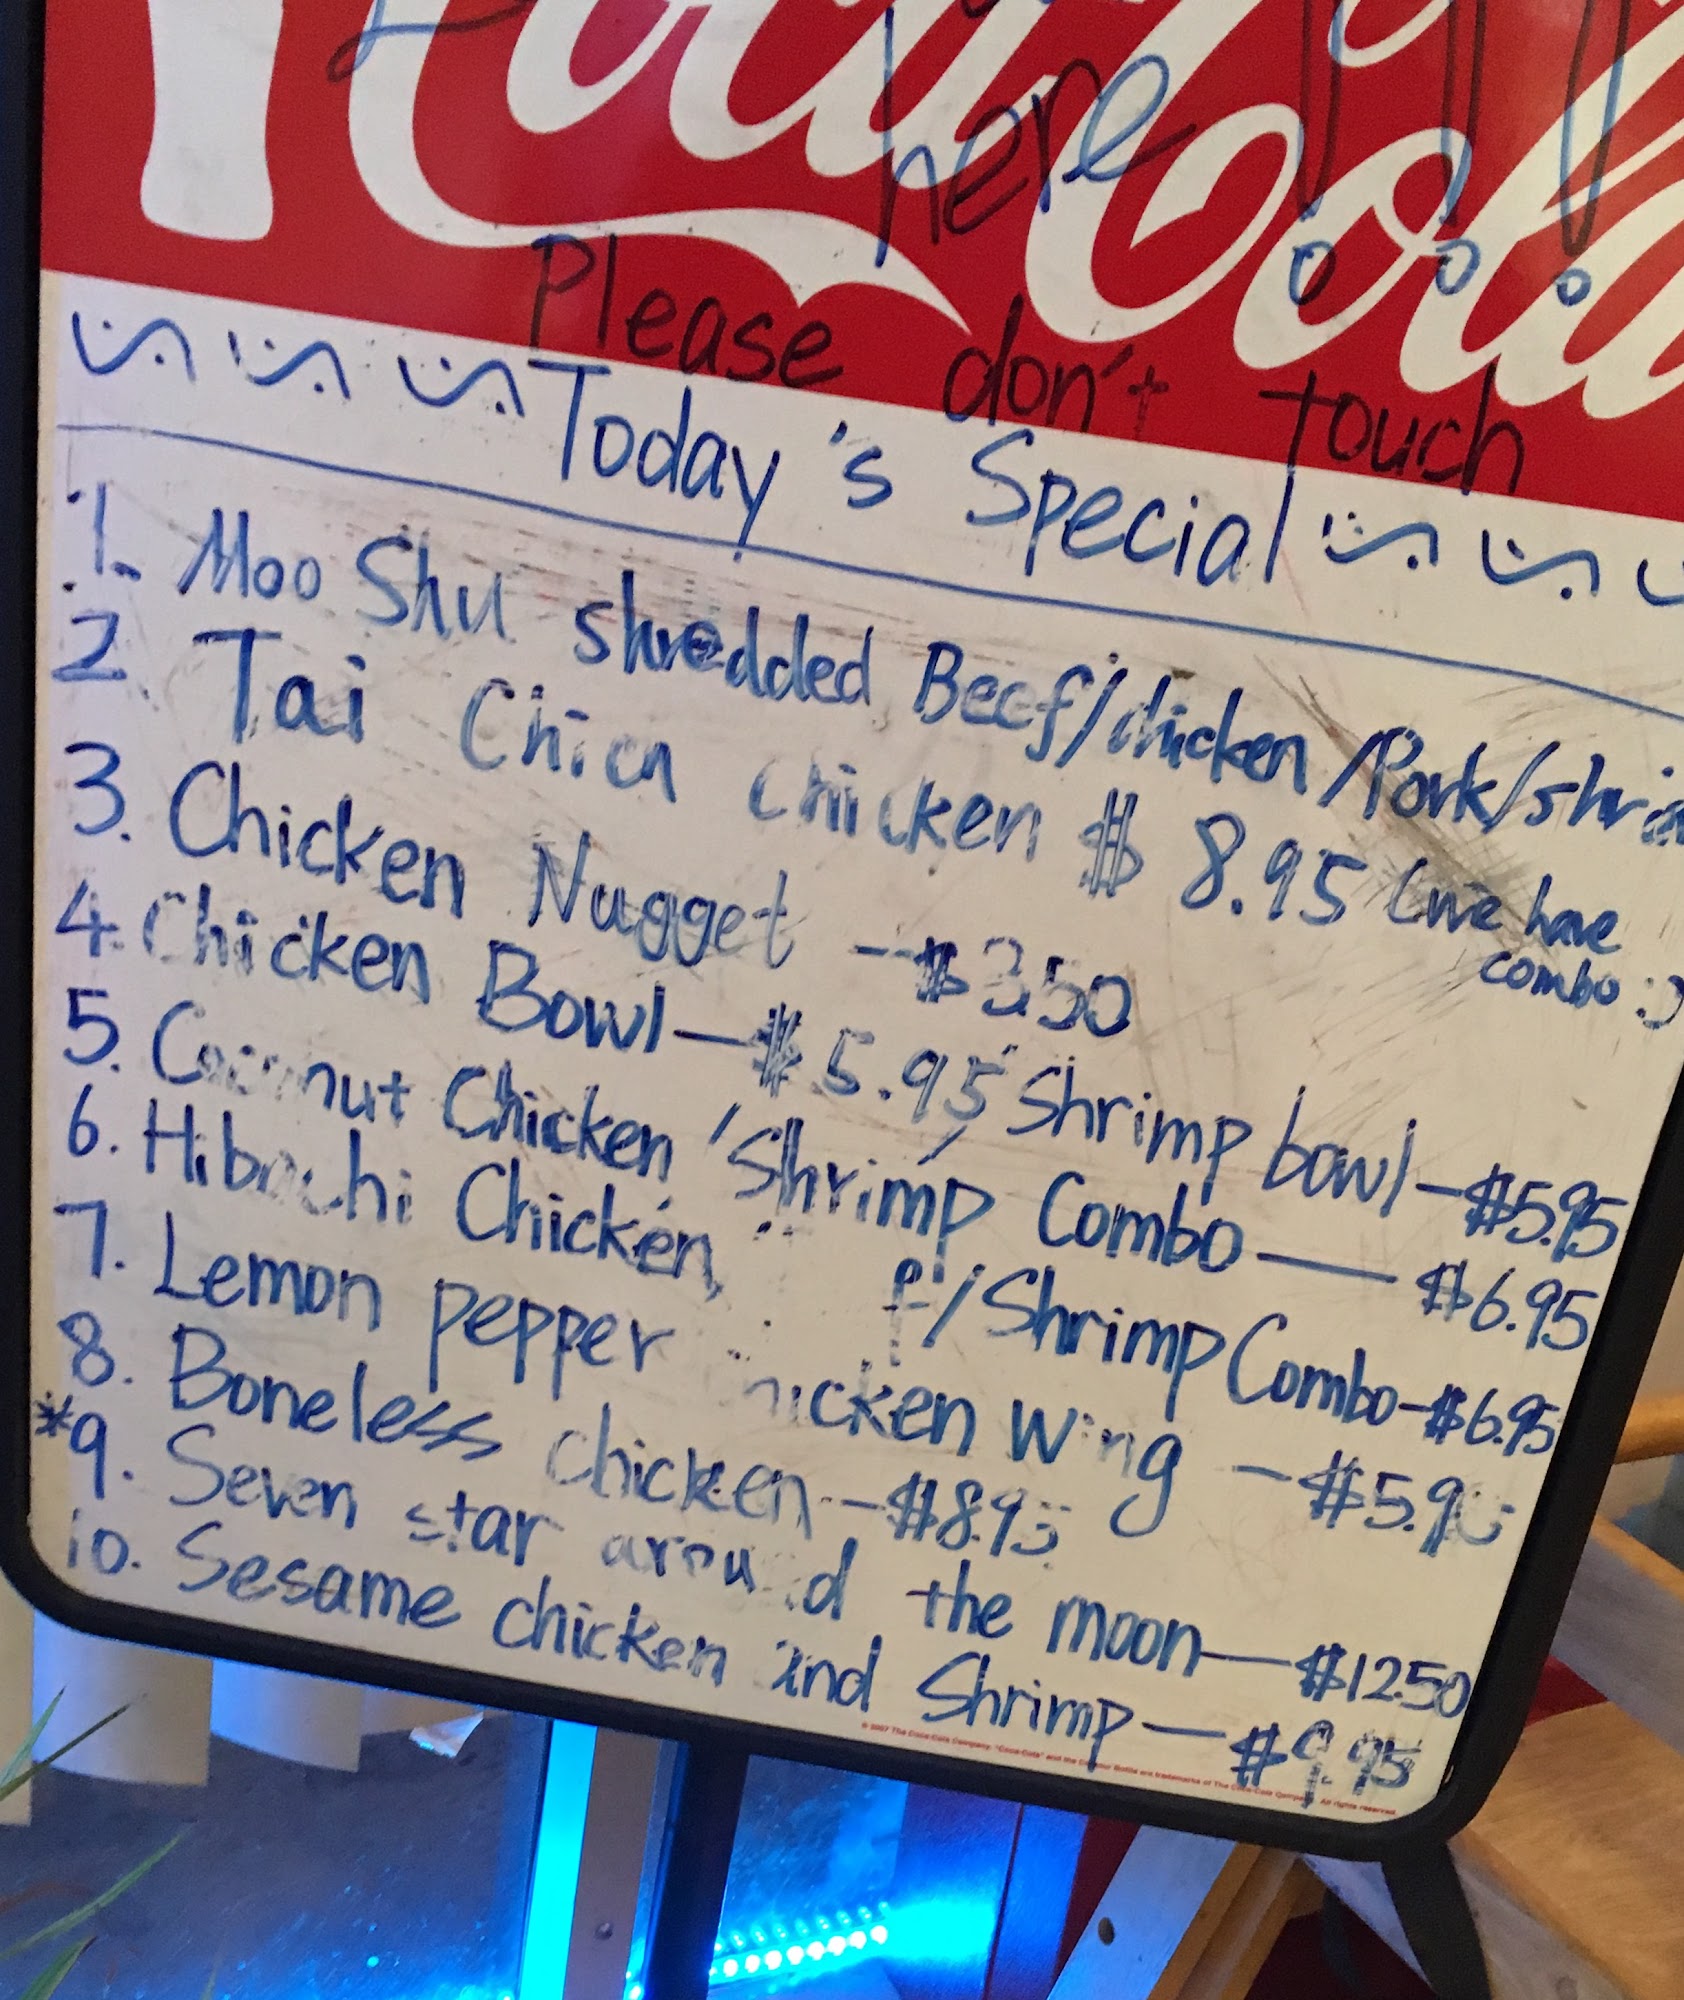 Coca-Cola
here
Please don't touch
Today's Special
1. Moo Shu shredded Beef/chicken/Pork/shrim
2. Tai Chien chicken $8.95 (we have
combo :)
3. Chicken Nugget -- $3.50
4. Chicken Bowl — $5.95 Shrimp bowl — $5.95
5. Coconut Chicken / Shrimp Combo — $6.95
6. Hibachi Chicken, / Shrimp Combo - $6.95
7. Lemon pepper chicken wing - $5.95
8. Boneless chicken -- $8.95
*9. Seven star around the moon — $12.50
10. Sesame chicken and Shrimp — $9.95
© 2007 The Coca-Cola Company. "Coca-Cola" and the Contour Bottle are trademarks of The Coca-Cola Company. All rights reserved.